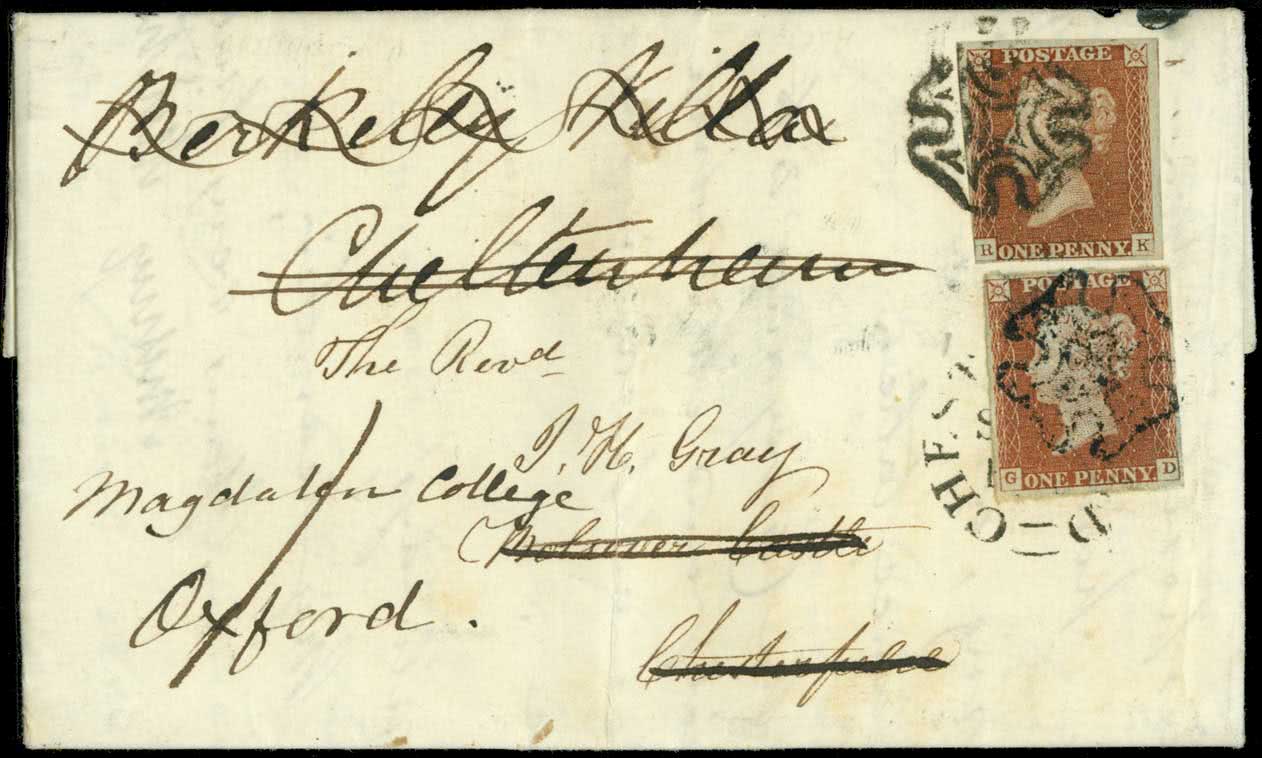 Berkeley Villa
Cheltenham
The Revd
J. H. Gray
Magdalen College
Bolsover Castle
Oxford.
Chesterfield
POSTAGE
R ONE PENNY K
POSTAGE
G ONE PENNY. D
CHEST
D